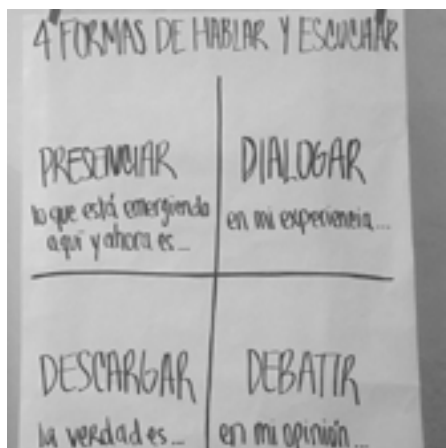 4 FORMAS DE HABLAR Y ESCUCHAR
PRESENCIAR
lo que está emergiendo
aquí y ahora es...
DIALOGAR
en mi experiencia...
DESCARGAR
la verdad es...
DEBATIR
en mi opinión...